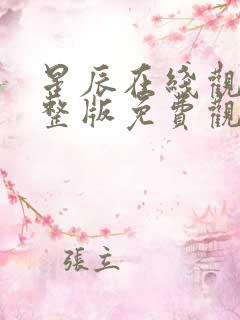 星辰在綫觀
整版免費觀
張立